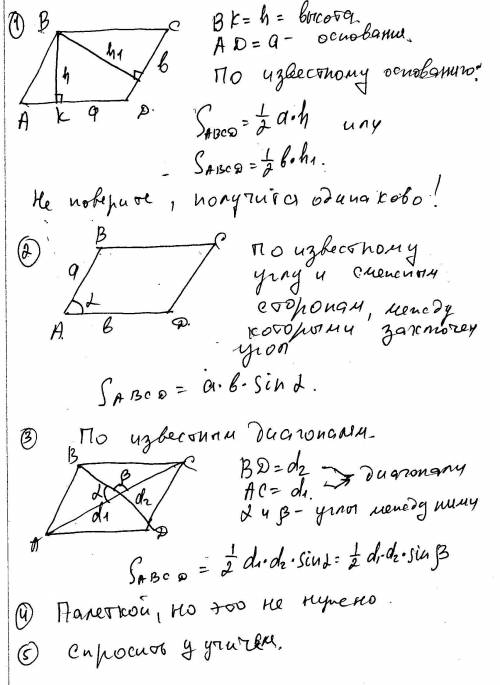 ① B C BK = h = высота.
h h₁ b AD = a - основание.
A K a D По известному основанию:
S_ABCD = 1/2 a·h или
S_ABCD = 1/2 b·h₁.
Не поверите, получится одинаково!
② B C по известному
a углу и смежным
α сторонам, между
A b D которыми заключен
угол
S_ABCD = a·b·sin α.
③ По известным диагоналям.
B C BD = d₂
α β d₂ AC = d₁. диагонали
d₁ α и β - углы между ними
A D
S_ABCD = 1/2 d₁·d₂·sin α = 1/2 d₁·d₂·sin β
④ Палеткой, но это не нужно.
⑤ Спросить у учител.